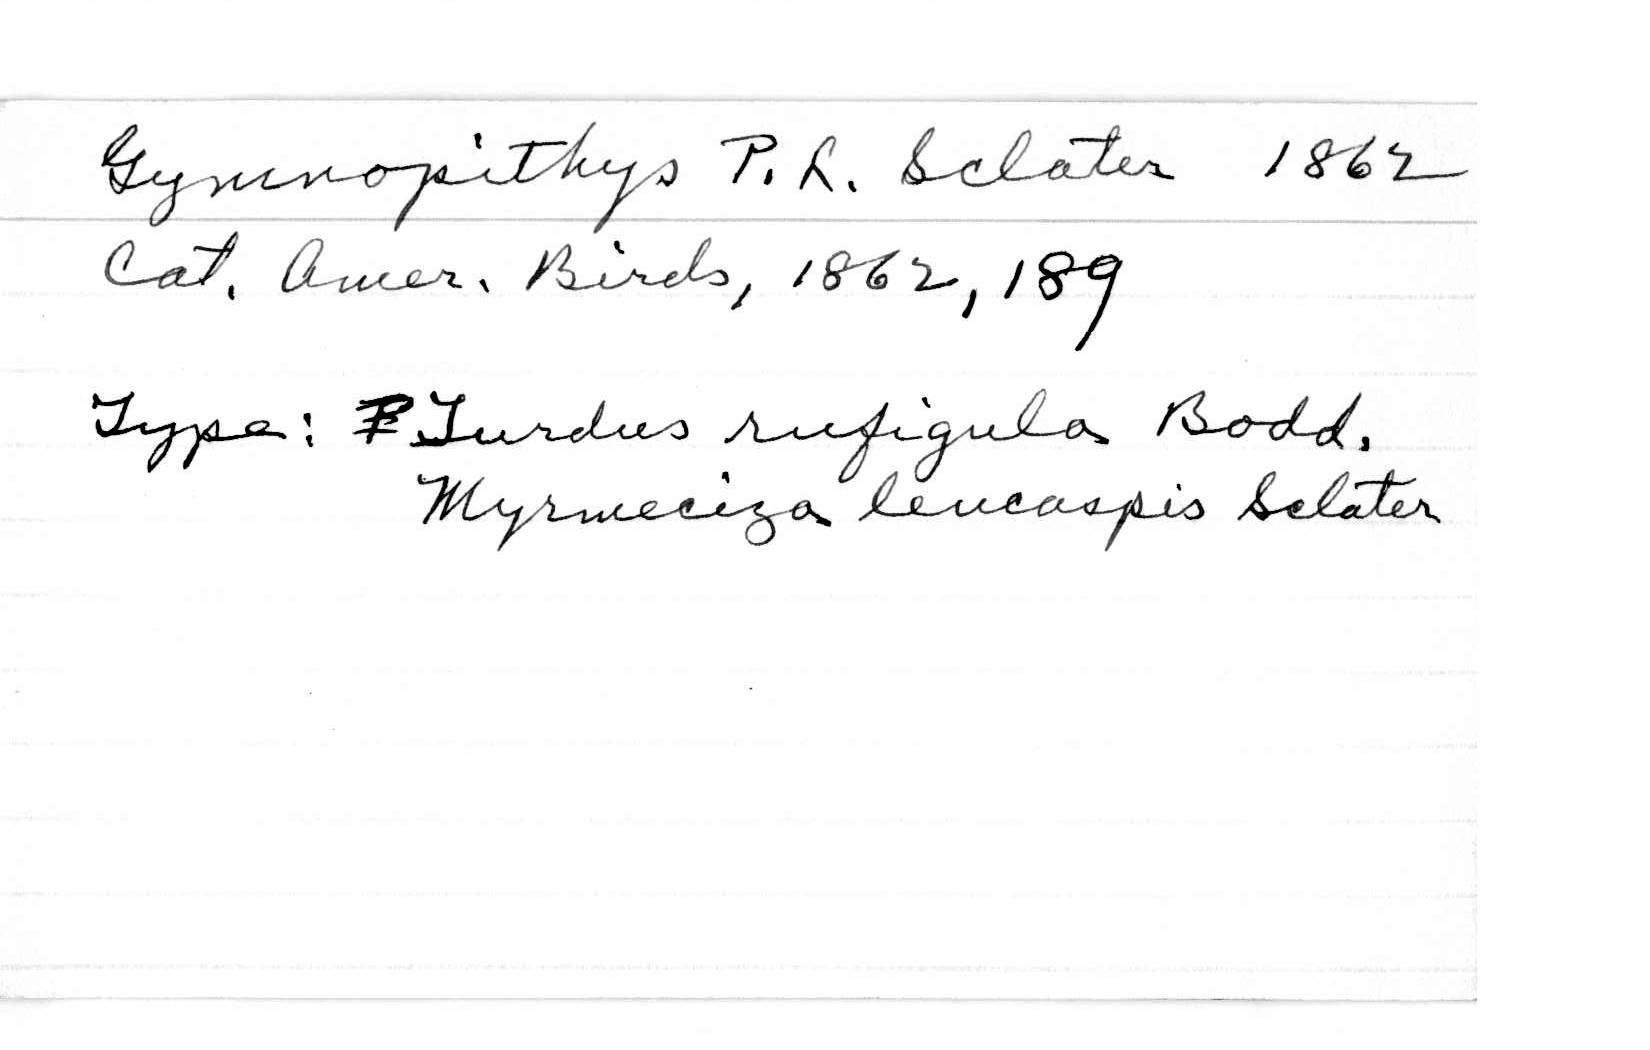 Gymnopithys P. L. Sclater 1862
Cat. Amer. Birds, 1862, 189
Type: Turdus rufigula Bodd.
Myrmeciza leucaspis Sclater